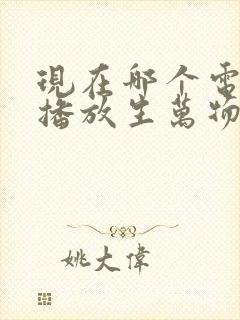 現在哪个電
播放生萬物
姚大偉